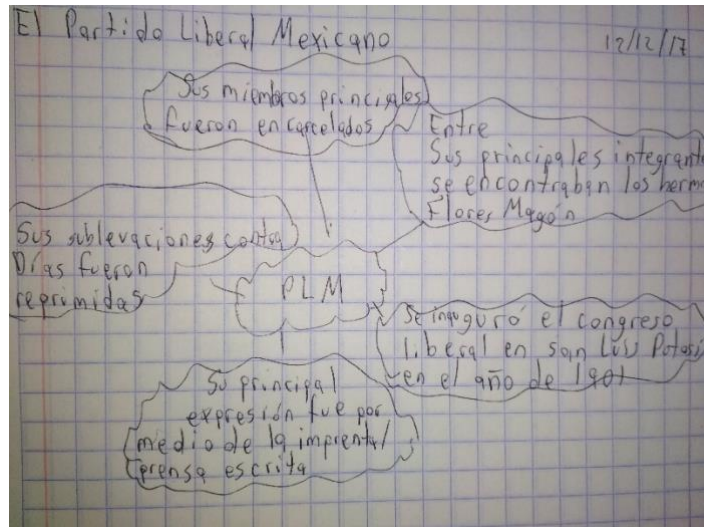 El Partido Liberal Mexicano
12/12/17
Sus miembros principales
fueron encarcelados
Entre
Sus principales integrant
se encontraban los herm
Flores Magón
Sus sublevaciones contra
Días fueron
reprimidas
PLM
Se inauguró el congreso
liberal en san Luis Potosí
en el año de 1901
Su principal
expresión fue por
medio de la imprenta/
prensa escrita